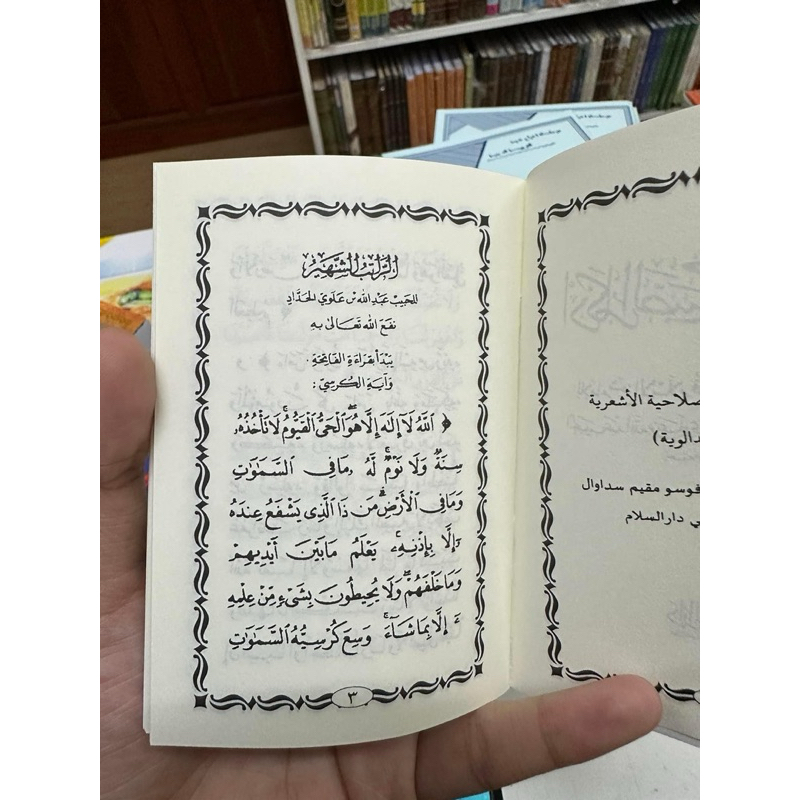 الرَّاتِبُ الشَّهِيرُ
للحَبِيْب عَبْدِ الله بْن عَلَوِي الحَدَّادِ
نَفَعَ اللهُ تَعَالَى بِهِ
يَبْدَأ بِقِرَاءَةِ الفَاتِحَةِ .
وَآيَةِ الكُرْسِيِّ :
﴿ ٱللَّهُ لَآ إِلَٰهَ إِلَّا هُوَ ٱلْحَىُّ ٱلْقَيُّومُ ۚ لَا تَأْخُذُهُۥ
سِنَةٌ وَلَا نَوْمٌ ۚ لَّهُۥ مَا فِى ٱلسَّمَٰوَٰتِ
وَمَا فِى ٱلْأَرْضِ ۗ مَن ذَا ٱلَّذِى يَشْفَعُ عِندَهُۥٓ
إِلَّا بِإِذْنِهِۦ ۚ يَعْلَمُ مَا بَيْنَ أَيْدِيهِمْ
وَمَا خَلْفَهُمْ ۖ وَلَا يُحِيطُونَ بِشَىْءٍ مِّنْ عِلْمِهِۦٓ
إِلَّا بِمَا شَآءَ ۚ وَسِعَ كُرْسِيُّهُ ٱلسَّمَٰوَٰتِ
٣
صلاحية الأشعرية
دالوية)
فوسو مقيم سداوال
ي دارالسلام